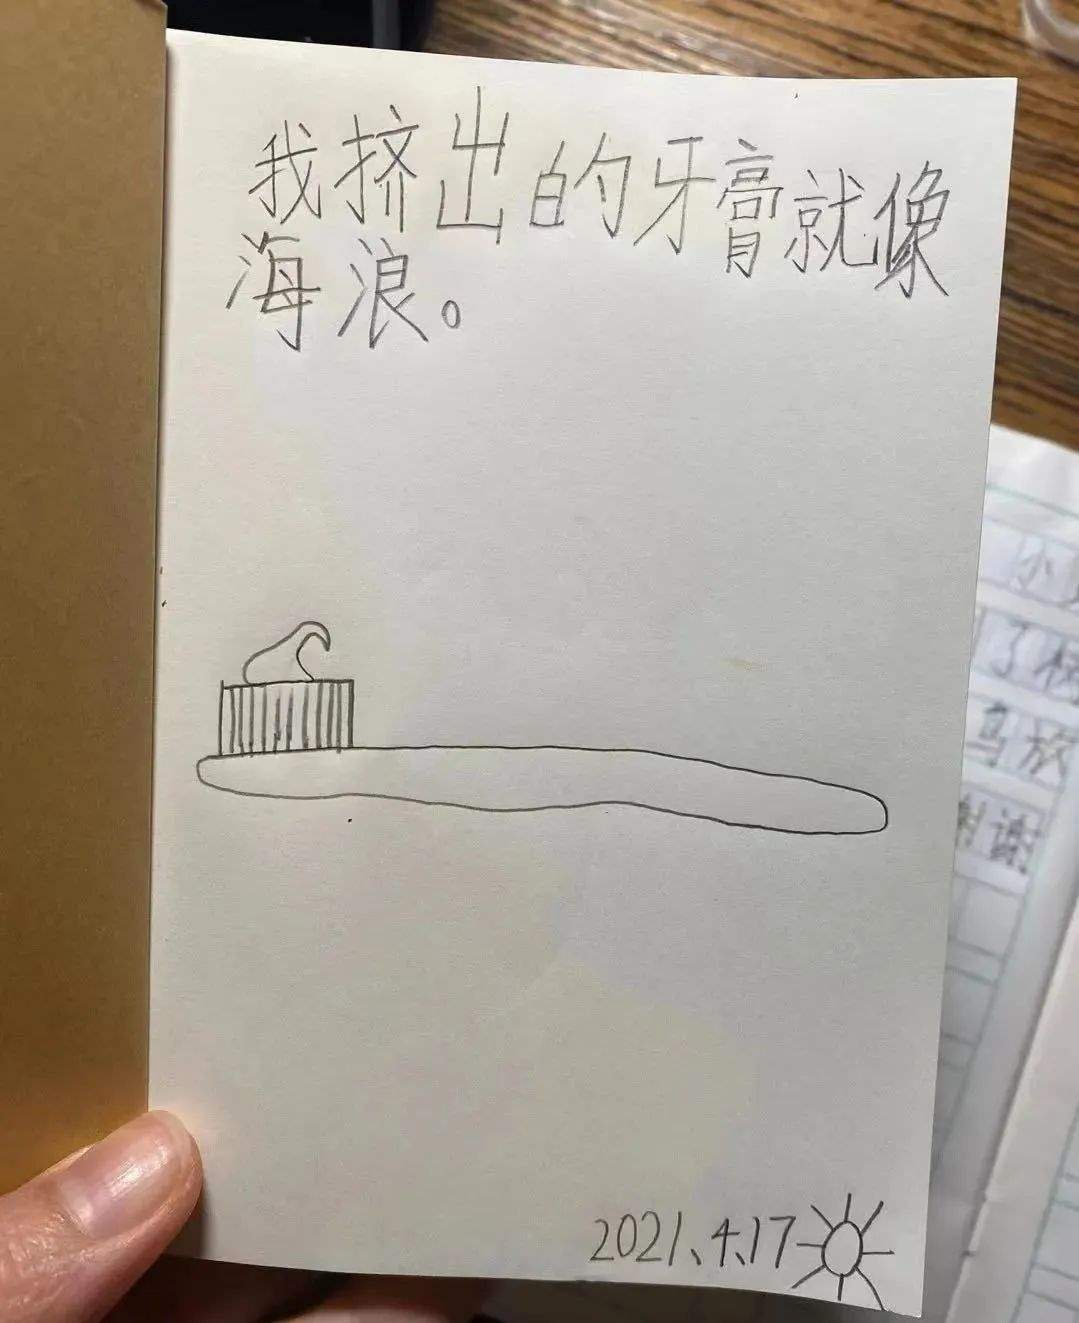 我挤出的牙膏就像
海浪。
2021.4.17
小
了
乌放
谢谢